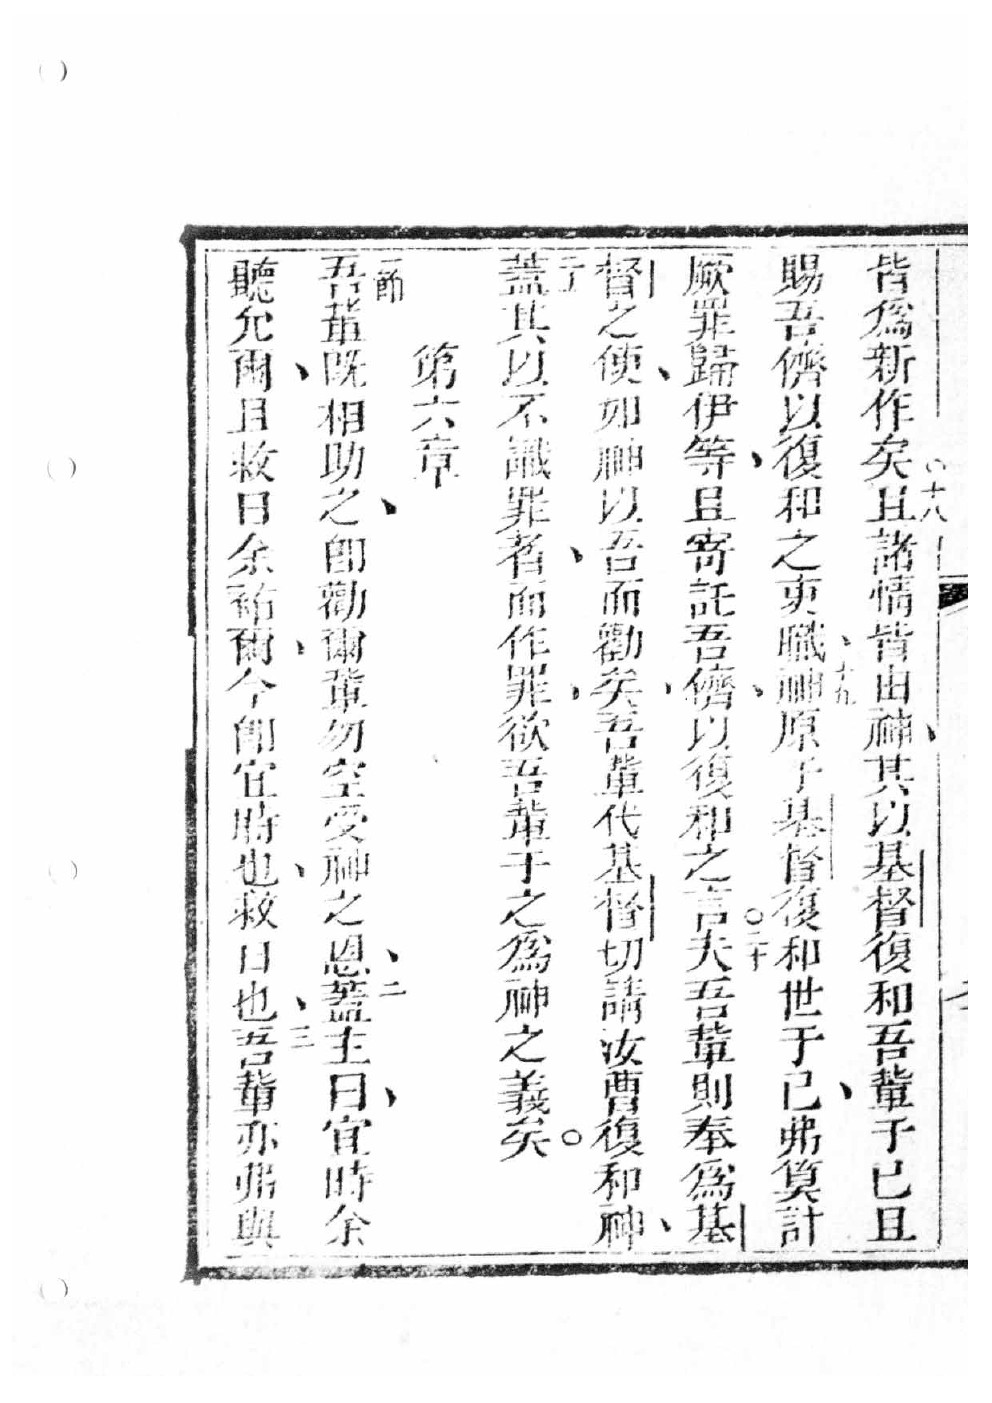 皆爲新作矣○十八且諸情皆由神、其以基督復和吾輩于己且
賜吾儕以復和之吏職、十九神原于基督復和世于己、弗算計
厥罪歸伊等、且寄託吾儕、以復和之言○二十夫吾輩則奉爲基
督之使、如神以吾而勸矣、吾輩代基督切請汝曹復和神、
二一蓋其以不識罪者、而作罪欲、吾輩于之爲神之義矣○
第六章
一節吾輩既相助之、卽勸爾輩勿空受神之恩、二蓋主曰、宜時余
聽允爾、且救日余祐爾、今卽宜時也、救日也、三吾輩亦弗與